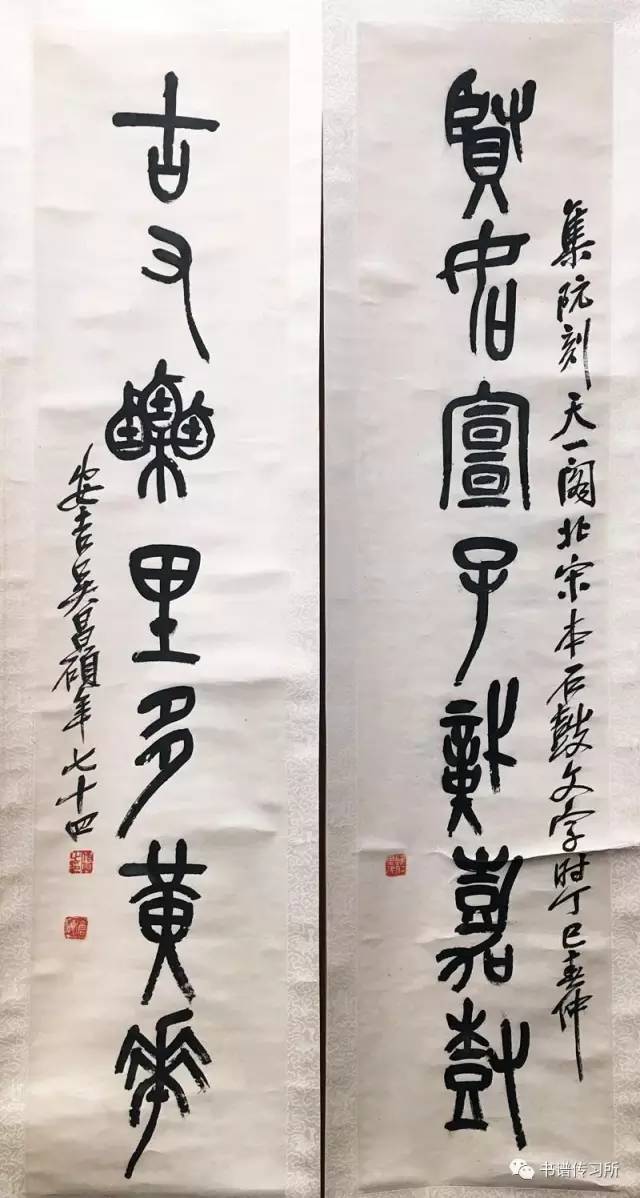 賢如宣子嘉樹
集阮刻天一閣北宋本石鼓文字时丁巳春仲
古又栗里多黄華
安吉吴昌碩年七十四
书谱传习所